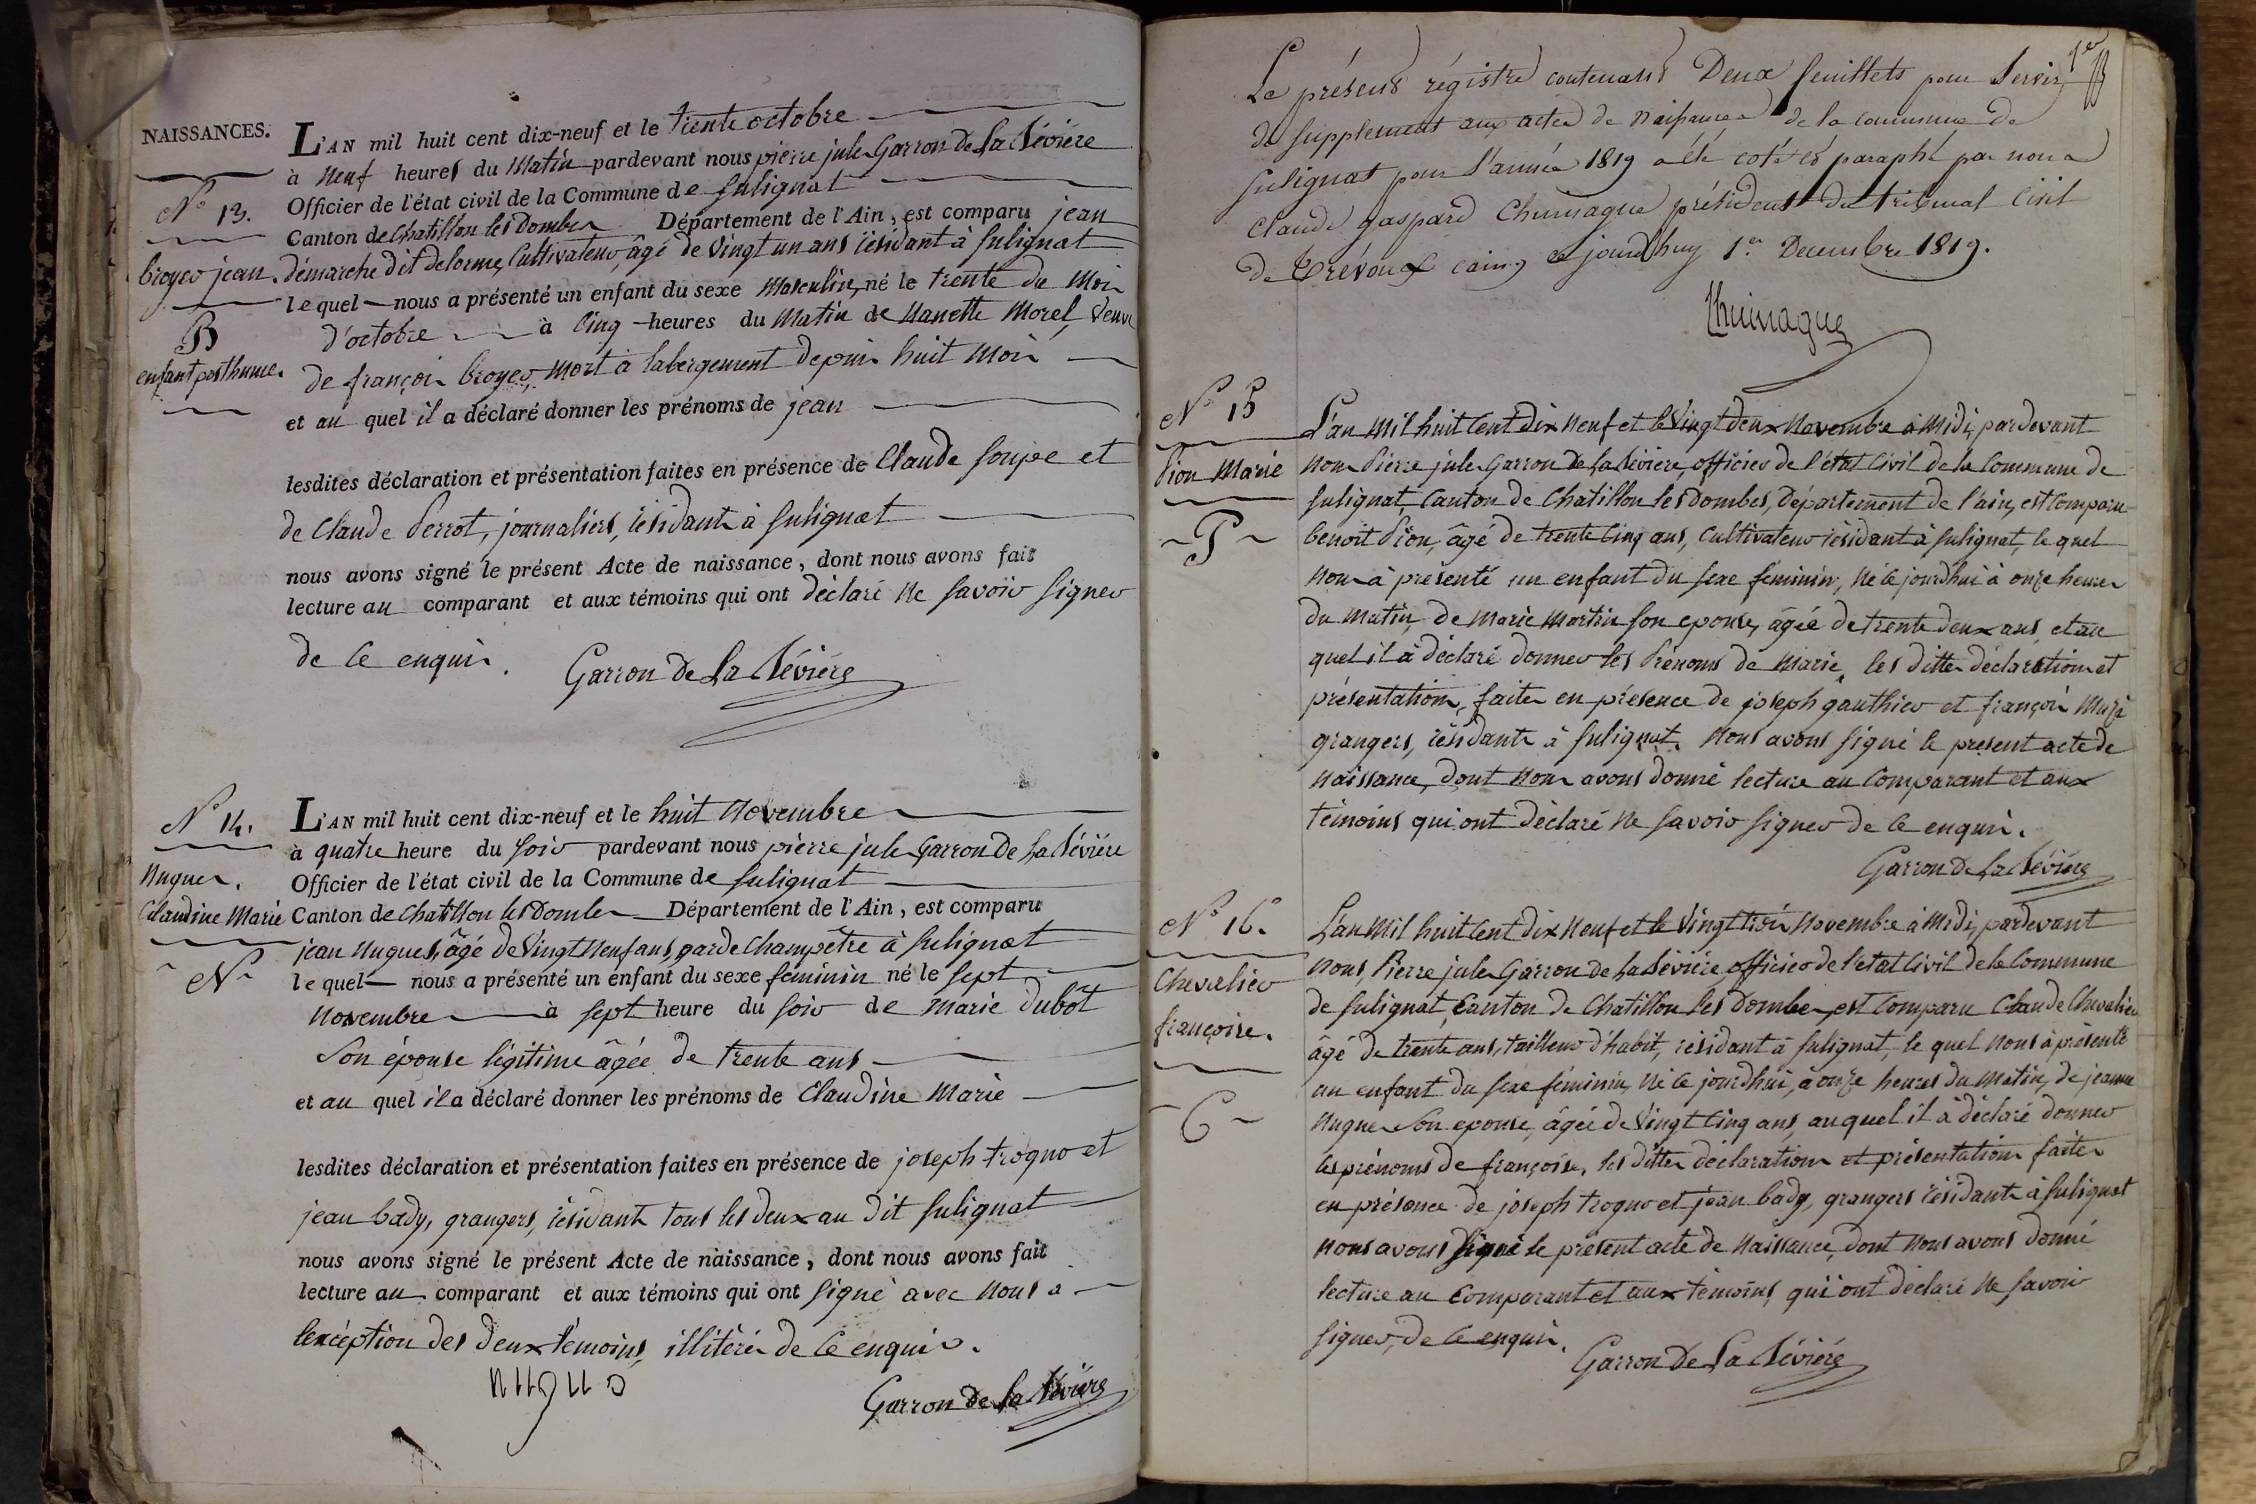 NAISSANCES.
L'AN mil huit cent dix-neuf et le trente octobre
à neuf heures du matin pardevant nous pierre jules Garron de La Sévière
Officier de l'état civil de la Commune de Sulignat
Canton de Chatillon les Dombes Département de l'Ain, est comparu jean
démarche dit delorme, Cultivateur, âgé de vingt un ans résidant à Sulignat
le quel nous a présenté un enfant du sexe Masculin, né le trente du mois
d'octobre à cinq heures du matin de Nanette Morel, veuve
de françois broyer, mort à labergement depuis huit mois
et au quel il a déclaré donner les prénoms de jean
lesdites déclaration et présentation faites en présence de Claude soupe et
de Claude Perrot, journaliers, résidants à Sulignat
nous avons signé le présent Acte de naissance, dont nous avons fait
lecture au comparant et aux témoins qui ont déclaré ne savoir signer
de ce enquis.
Garron de La Sévière
N° 13.
broyer jean.
B
enfant posthume.
N° 14.
Nugues.
Claudine Marie
N
L'AN mil huit cent dix-neuf et le huit Novembre
à quatre heure du soir pardevant nous pierre jules Garron de La Sévière
Officier de l'état civil de la Commune de Sulignat
Canton de Chatillon les Dombes Département de l'Ain, est comparu
jean Nugues, âgé de vingt neuf ans, garde Champêtre à Sulignat
le quel nous a présenté un enfant du sexe féminin né le sept
Novembre à sept heure du soir de Marie dubôt
son épouse légitime âgée de trente ans
et au quel il a déclaré donner les prénoms de Claudine Marie
lesdites déclaration et présentation faites en présence de joseph trogno et
jean bady, grangers, résidants tous les deux au dit Sulignat
nous avons signé le présent Acte de naissance, dont nous avons fait
lecture au comparant et aux témoins qui ont signé avec nous a
lexcéption des deux témoins, illitérés de ce enquis.
Garron de La Sévière
1er
Le présent régistre contenant Deux feuillets pour Servir
de supplement aux actes de Naissances de la commune de
Sulignat pour l'année 1819 a été coté et paraphé par nous
Claude gaspard Chuinague président du tribunal Civil
de Trévoux ain, ce jourdhuy 1er Decembre 1819.
Chuinague
N° 15
Pion Marie
P
L'an mil huit cent dix Neuf et le vingt deux Novembre à midi, pardevant
nous Pierre jules Garron de La Sévière, officier de l'état Civil de la Commune de
Sulignat, Canton de Chatillon les Dombes, Département de l'ain, est Comparu
benoit Pion, âgé de trente cinq ans, cultivateur résidant à Sulignat, le quel
nous à présenté un enfant du sexe féminin, né ce jourdhui à onze heures
du matin, de Marie Martin son epouse, âgée de trente deux ans, et au
quel il à déclaré donner les Prénoms de Marie, les dittes déclaration et
présentation, faites en présence de joseph gauthier et françois
grangers, résidants à Sulignat. Nous avons signé le present acte de
Naissance, dont nous avons donné lecture au Comparant et aux
témoins qui ont déclaré ne savoir signer de ce enquis.
Garron de La Sévière
N° 16.
Chevalier
françoise.
C
L'an mil huit cent dix Neuf et le vingt trois Novembre à midi, pardevant
Nous, Pierre jules Garron de La Sévière officier de l'etat Civil de la Commune
de Sulignat, Canton de Chatillon les Dombes est Comparu Claude Chevalier
âgé de trente ans, tailleur d'habit, résidant à Sulignat, le quel nous à présenté
un enfant du sexe féminin, né ce jourdhui, à onze heures du matin, de jeanne
Nugues son epouse, âgée de vingt cinq ans, au quel il à déclaré donner
les prénoms de françoise, les dittes déclaration et présentation faites
en présence de joseph trogno et jean bady, grangers résidants à Sulignat
Nous avons signé le présent acte de Naissance, dont nous avons donné
lecture au Comparant et aux témoins, qui ont déclaré ne savoir
signer, de ce enquis.
Garron de La Sévière